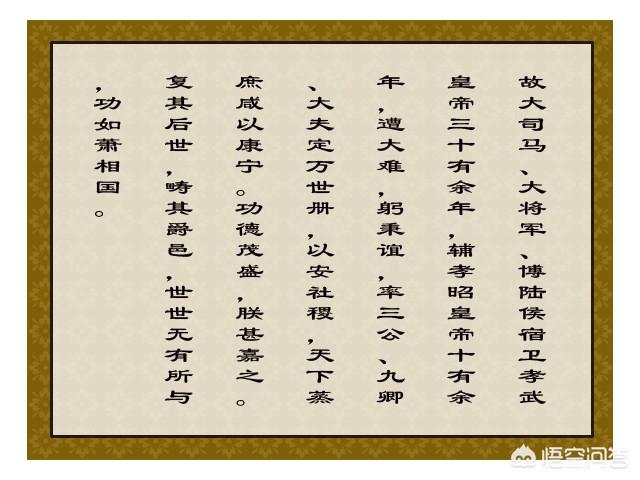 故大司马、大将军、博陆侯宿卫孝武
皇帝三十有余年,辅孝昭皇帝十有余
年,遭大难,躬秉谊,率三公、九卿
、大夫定万世册,以安社稷,天下蒸
庶咸以康宁。功德茂盛,朕甚嘉之。
复其后世,畴其爵邑,世世无有所与
,功如萧相国。
悟空问答